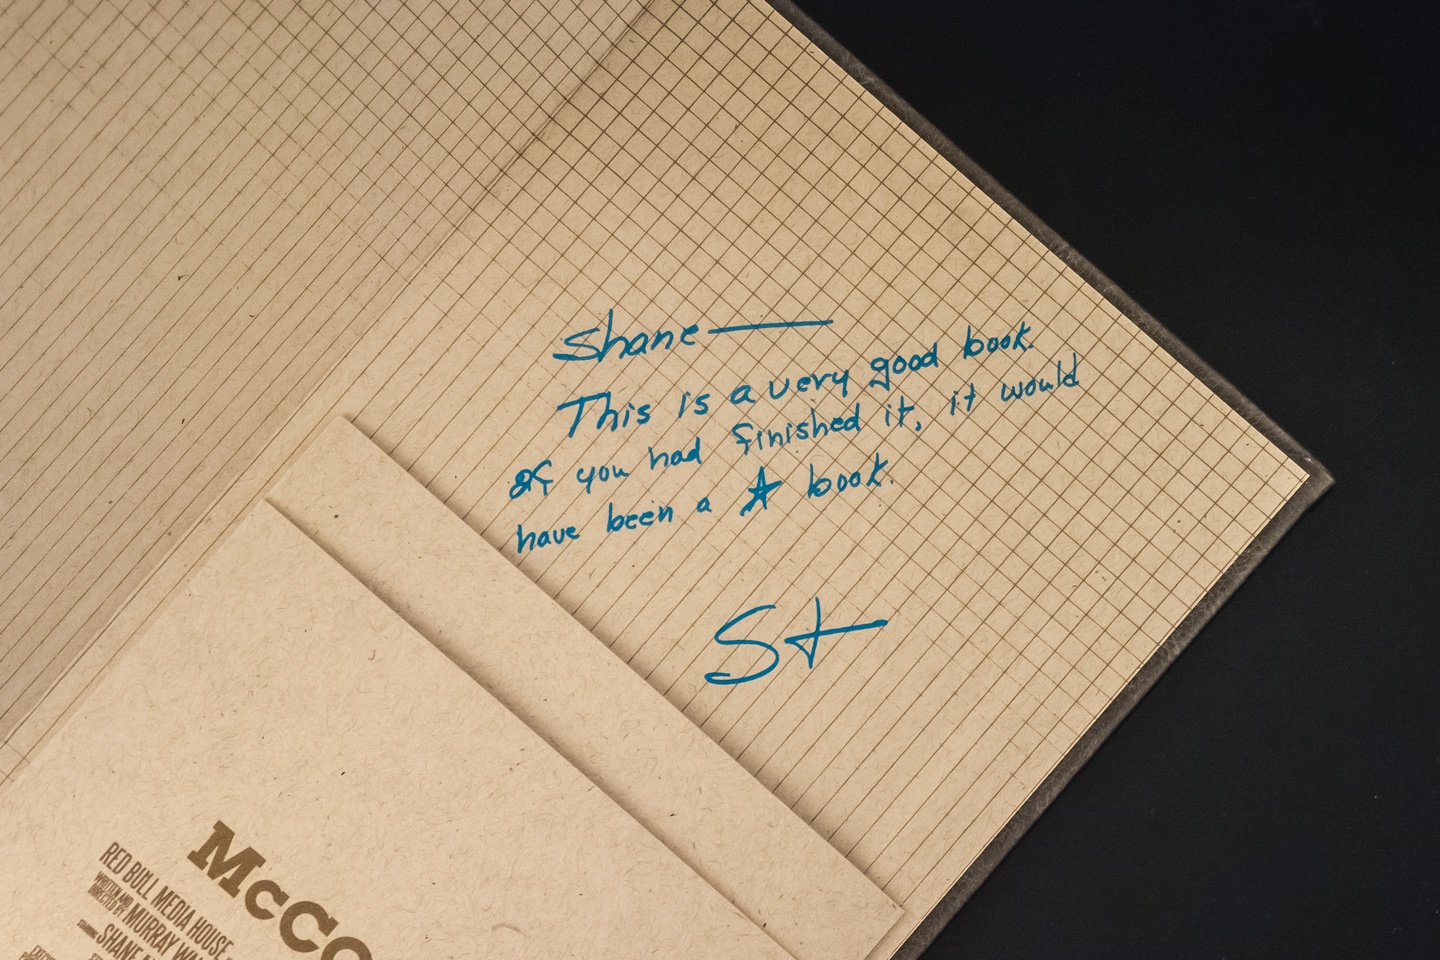 Shane —
This is a very good book.
If you had finished it, it would
have been a ★ book.
St
McCo
RED BULL MEDIA HOUSE
WRITTEN AND
DIRECTED BY MURRAY
STARRING SHANE